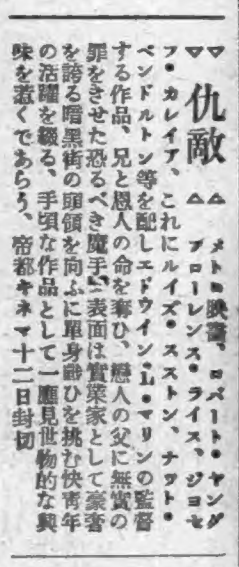 ▽ 仇敵 △
▽ メトロ映畫、ロバート・ヤング
△ フローレンス・ライス、ジョセ
フ・カレイア、これにルイズ・スストン、ナット・
ペンドルトン等を配しエドウイン・L・マリンの監督
する作品、兄と恩人の命を奪ひ、戀人の父に無實の
罪をさせた恐るべき魔手、表面は實業家として豪奢
を誇る暗黑街の頭領を向ふに單身戰ひを挑む快靑年
の活躍を綴る、手頃な作品として一應見世物的な興
味を惹くであらう、帝都キネマ十二日封切